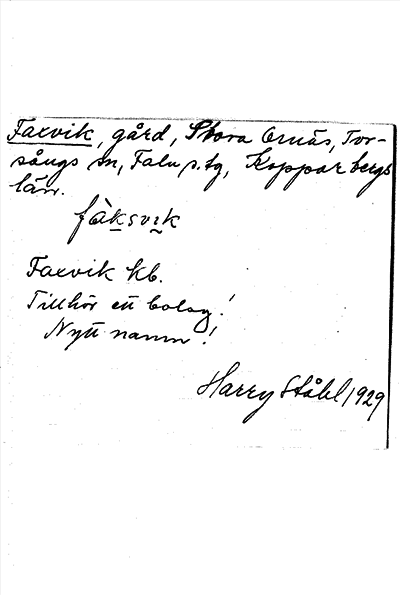 Faxvik, gård, Stora Ornäs, Tor-
sångs sn, Falu s. tg, Kopparbergs
län.
fàksvɩk
Faxvik kb.
Tillhör ett bolag!
Nytt namn!
Harry Ståhl 1929